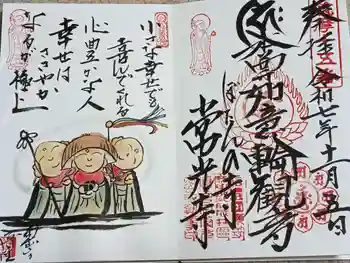 奉拝 令和七年十一月五日
如意輪観音
ぼたんの寺
常光寺
小さな幸せでも
喜んでくれる
心豊かな人
幸せは
ささやか
なるが極上